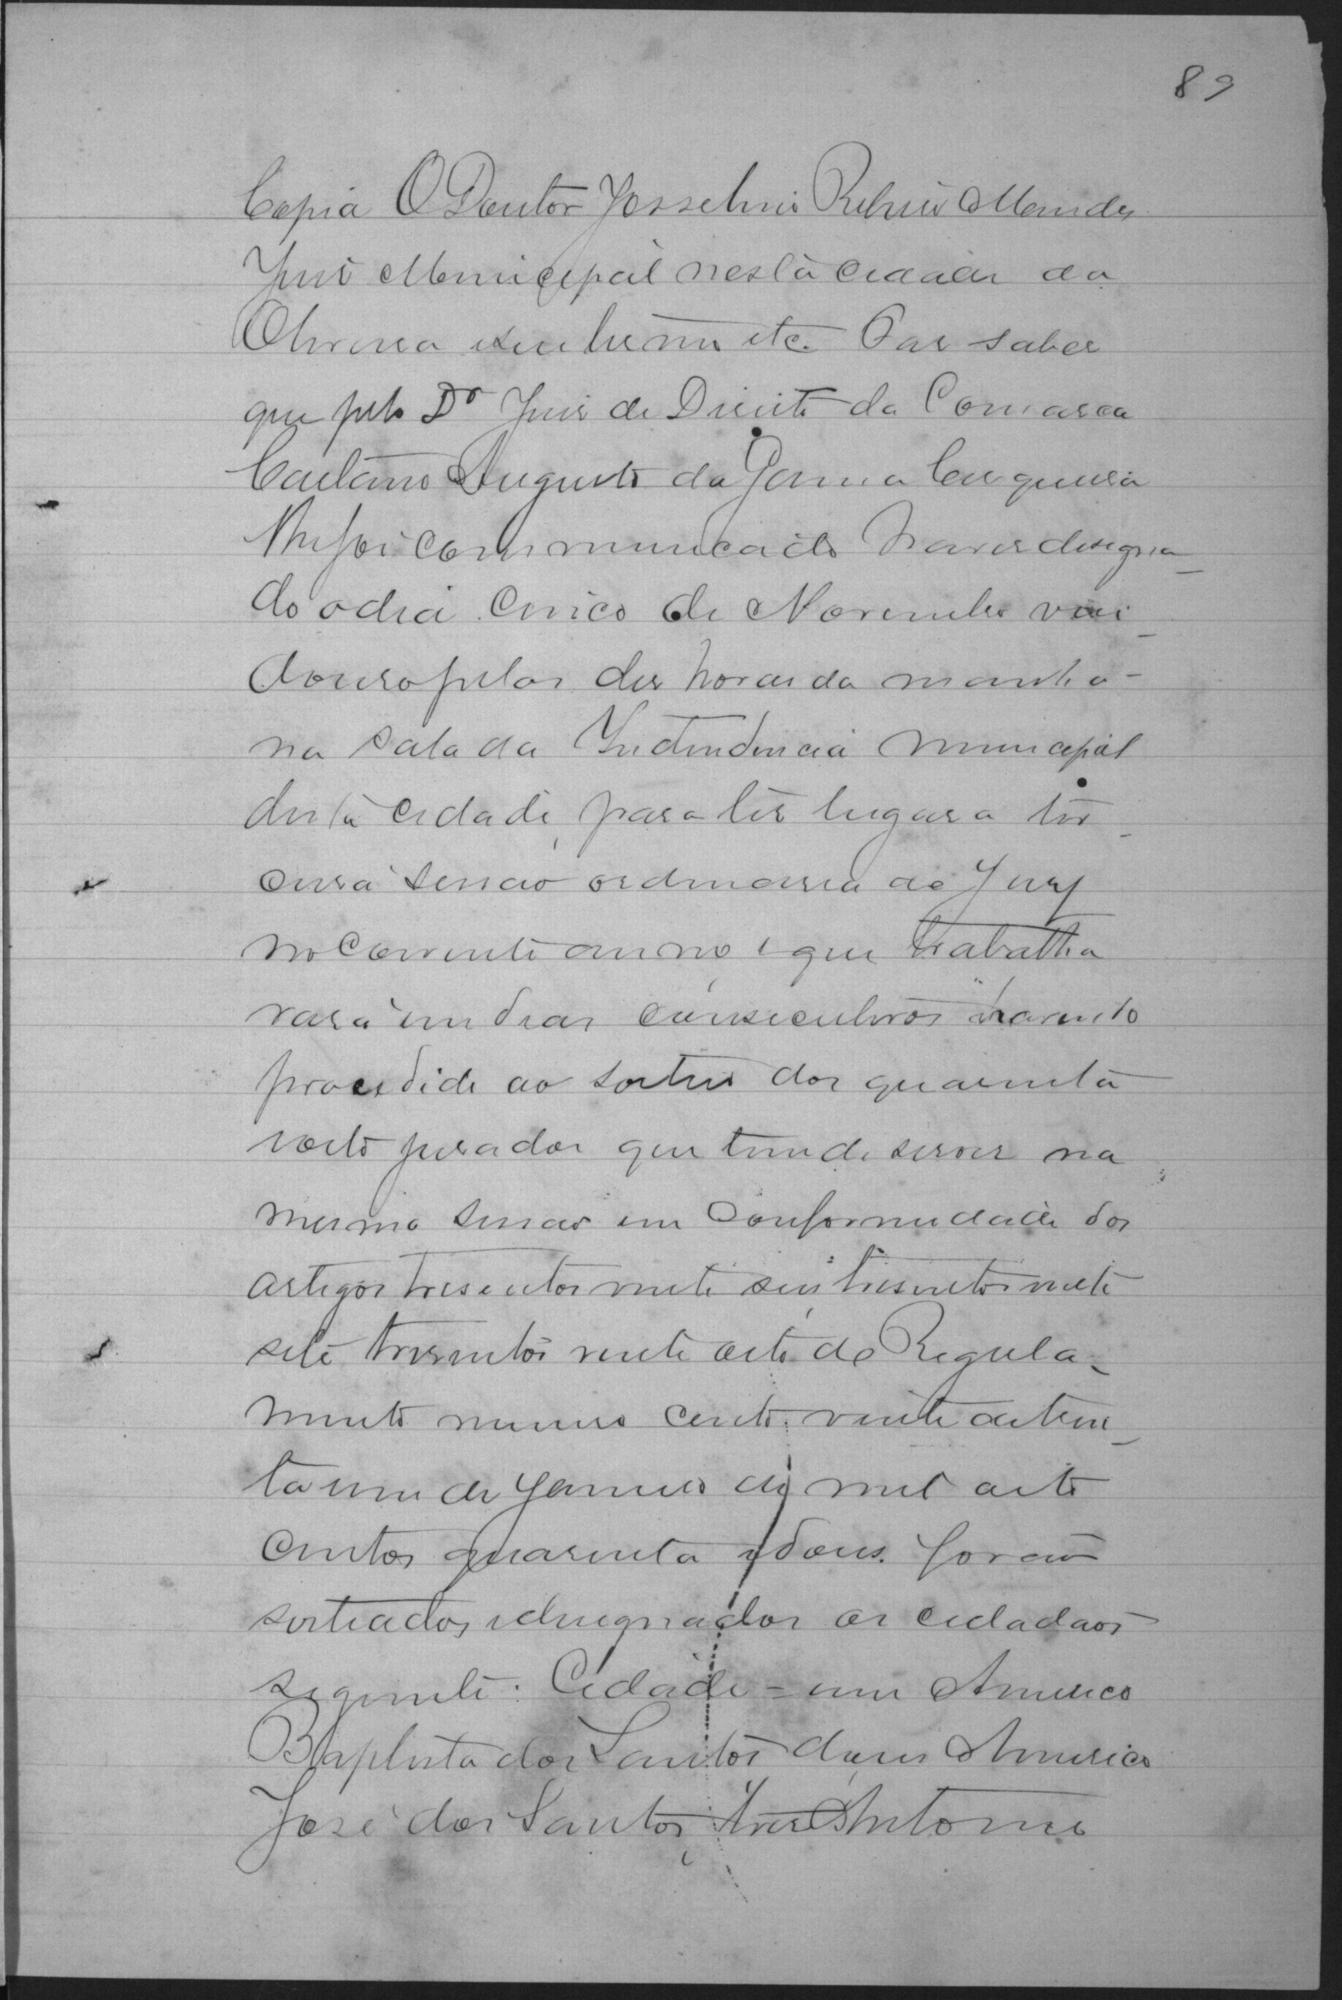 89
Copia O Doutor Josselino Ribeiro Mendes
Juis Municipal nesta cidade da
Oliveira e seu termo etc. Fas saber
que pelo Dr Juis de Direito da Comarca
Caetano Augusto da Gama Cerqueira
lhe foi communicado haver designa
do o dia cinco de Novembro vin
douro pelas des horas da manhã
na sala da Intendencia municipal
desta cidade, para ter lugar a ter
ceira sessão ordinaria do Jury
no corrente anno e que trabalha
rará em dias consecutivos havendo
procedido ao sorteio dos quarenta
e oito jurados que tem de servir na
mesma sessão em conformidade dos
artigos tresentos vinte seis tresentos vinte
sete tresentos vinte oito do Regula-
mento numero cento vinte de trin
ta um de Janeiro de mil oito
centos quarenta e dous. Forão
sorteados e designados os cidadãos
seguinte: Cidade = um Americo
Baptista dos Santos dous Americo
José dos Santos, tres Antonio